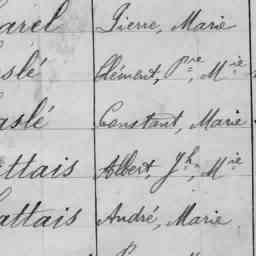 arel Pierre, Marie
slé Clément, Pre, Mie
aslé Constant, Marie
ttais Albert, Jh, Mie
attais André, Marie